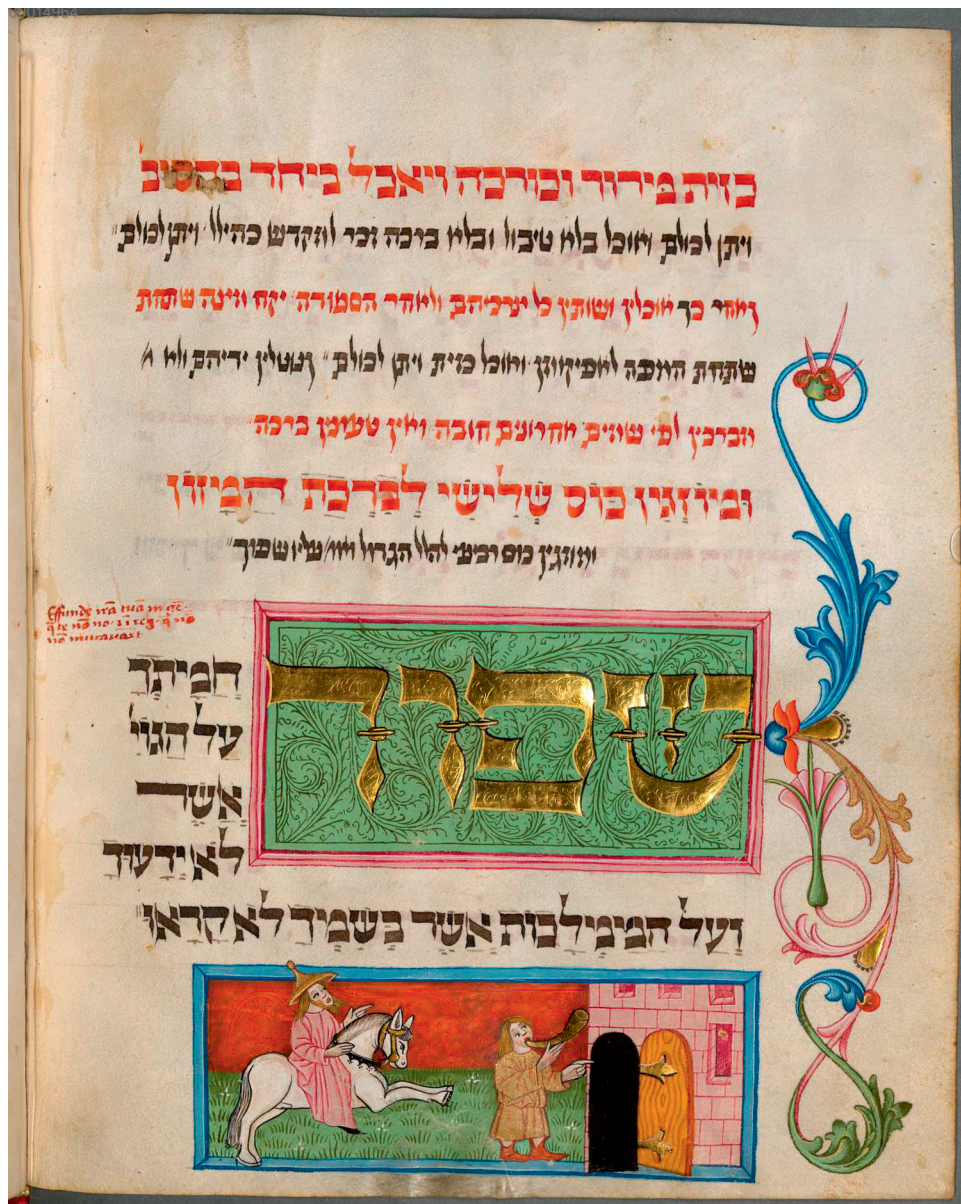 כזית מירור וכורכה ויאכל ביחד בהסיב
ויתן לכולם ואוכל בלא טיבול ובלא ברכה זכר למקדש כהילל ויתן לכולם
ואחר כך אוכלין ושותין כל צרכיהם ולאחר הסעודה יקח מצה שתחת
שתחת המפה לאפיקומן ואוכל כזית ויתן לכולם ונוטלין ידיהם ולא
ומברכין לפי שמים אחרונים חובה ואין טעונין ברכה
ומוזגין כוס שלישי לברכת המזון
ומוזגין כוס רביעי להלל הגדול ויאמר שפוך
Effunde irā tuā in gē
q̄ te nō no
nō inuocauert
שפוך
חמיתך
על הגוי
אשר
לא ידעוך
ועל הממלכות אשר בשמיך לא קראו